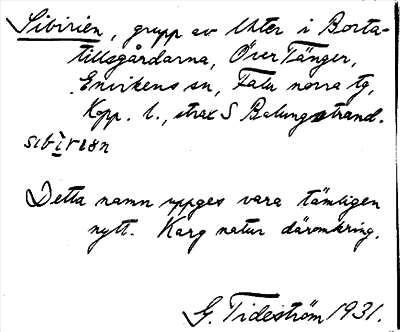 Sibirien, grupp av åkter i Borta-
tillsgårdarna, Över Tänger,
Envikens sn, Falu norra tg,
Kopp. l., strax S Balungstrand.
sibirεən
Detta namn uppges vara tämligen
nytt. Karg natur däromkring.
G. Tideström 1931.